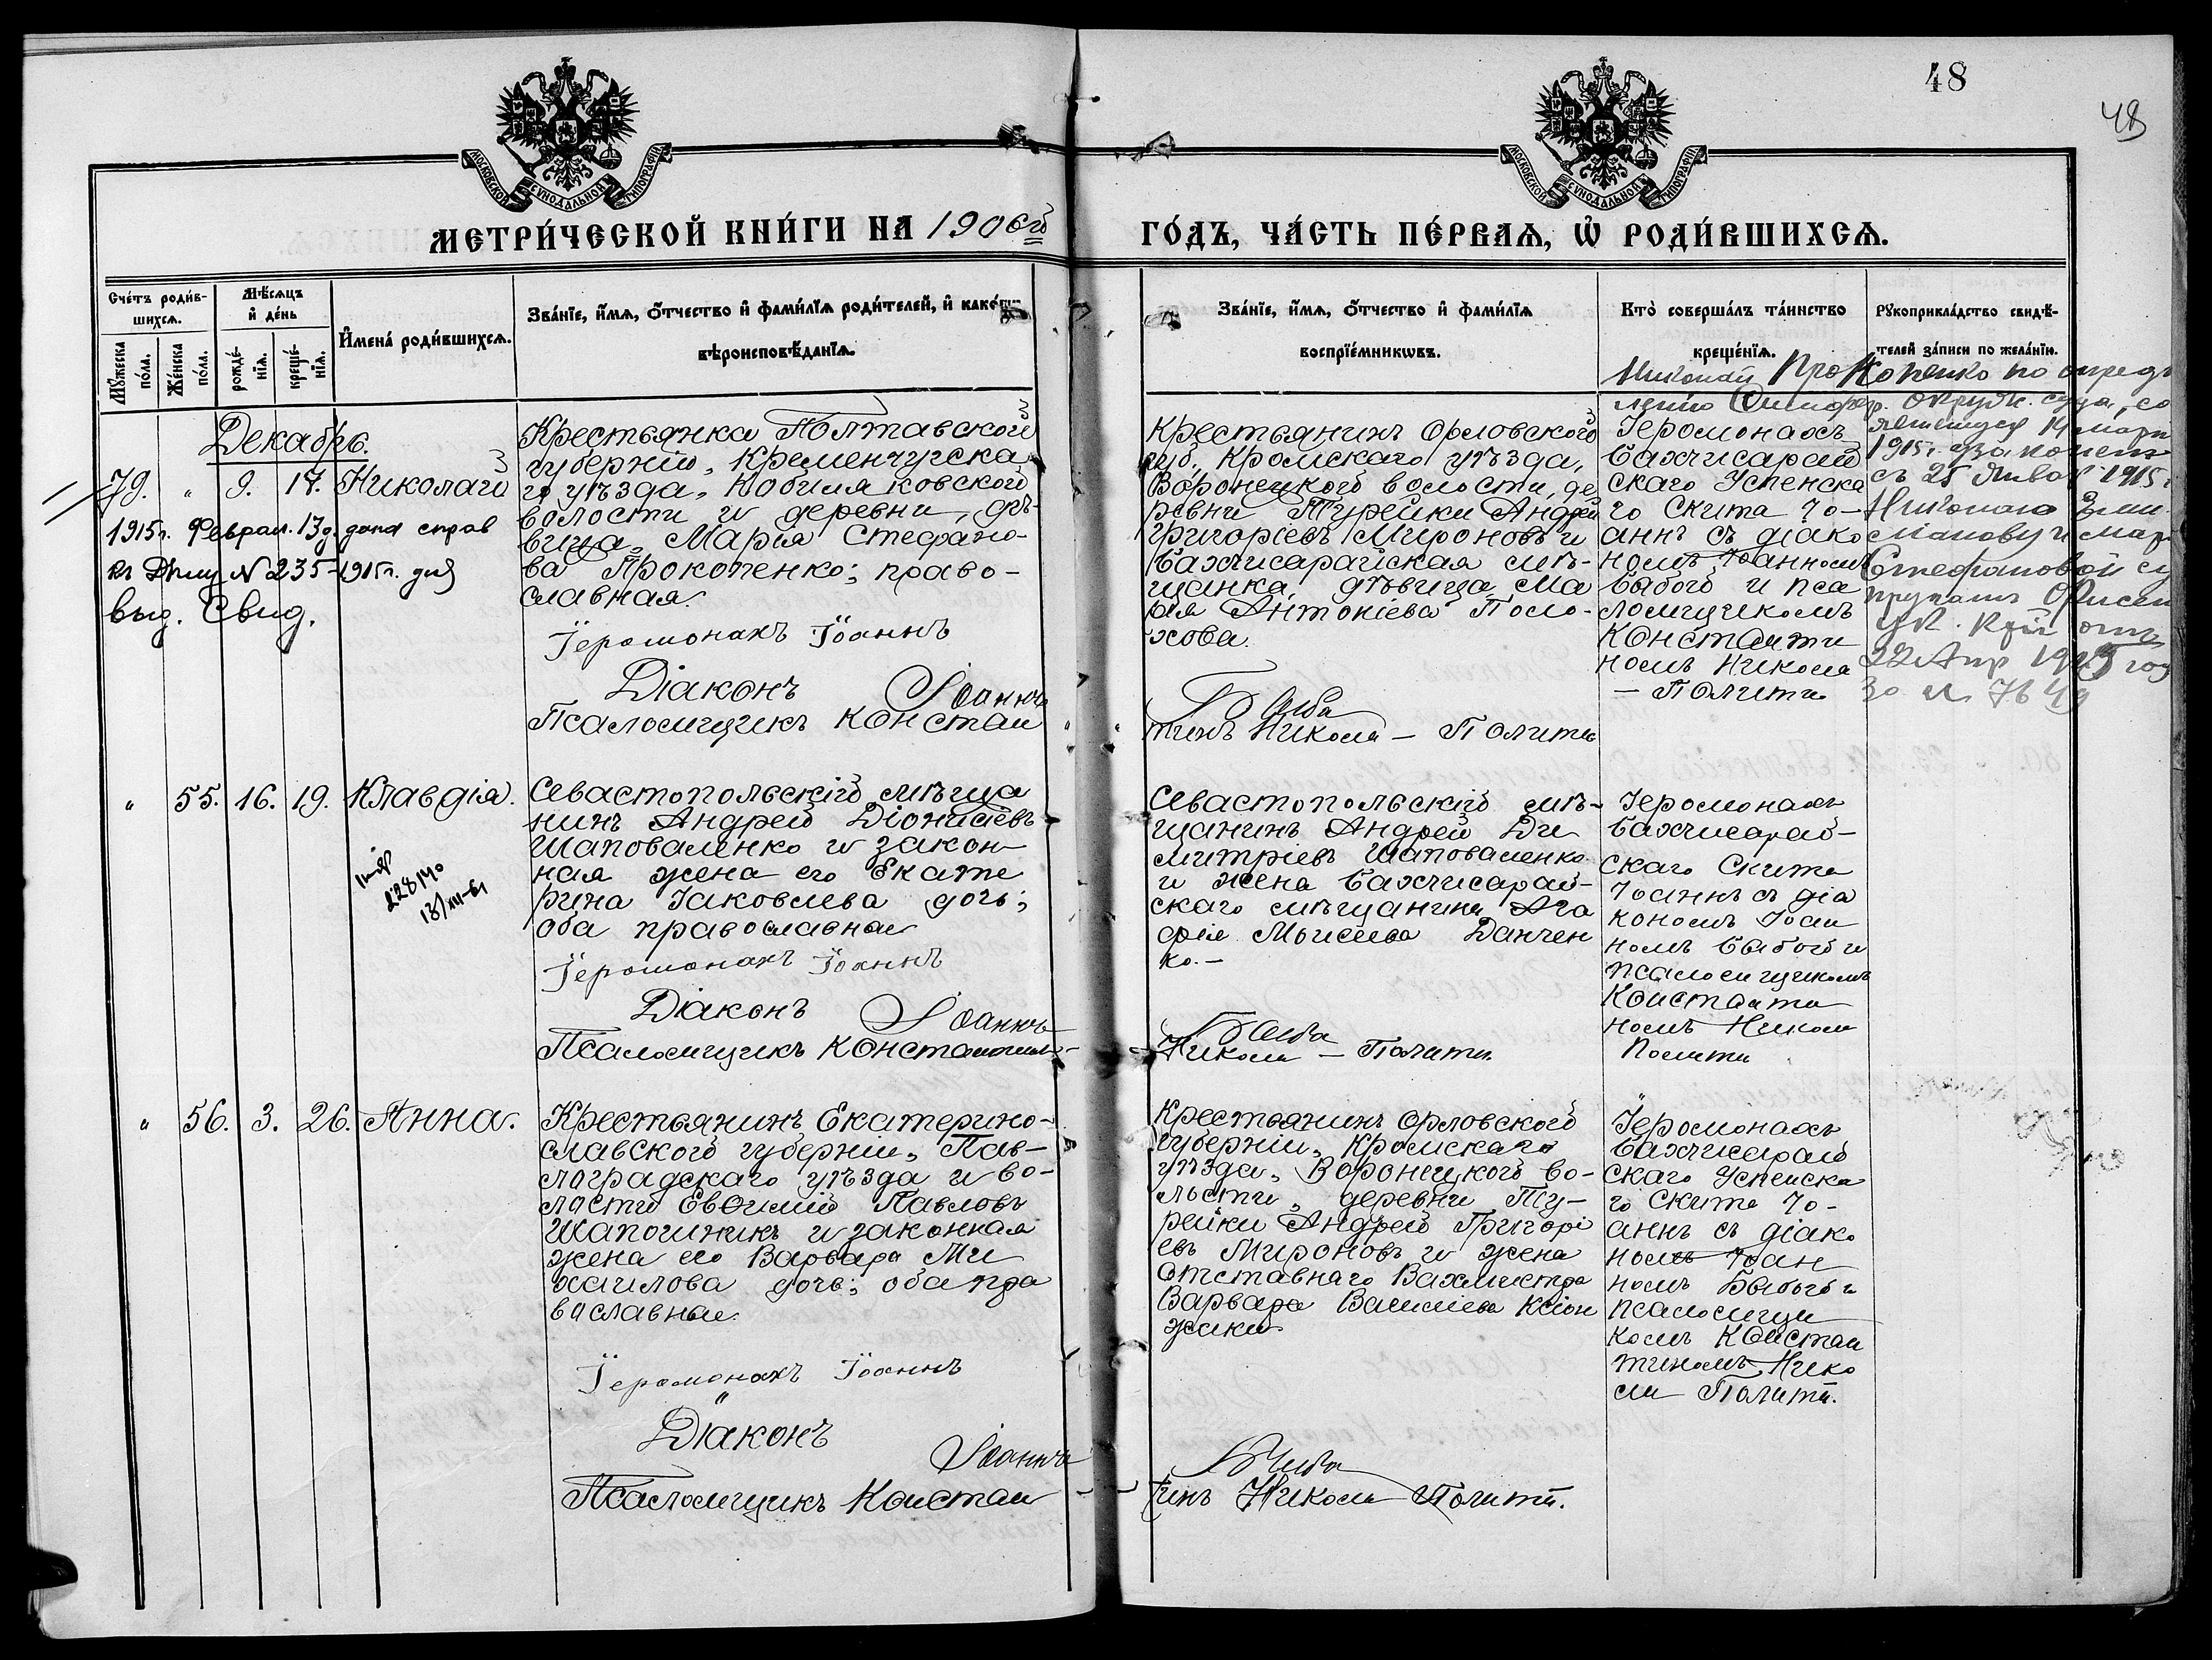 48
48
МОСКОВСКОЙ СУНОДАЛЬНОЙ ТИПОГРАФІИ
МОСКОВСКОЙ СУНОДАЛЬНОЙ ТИПОГРАФІИ
МЕТРИ́ЧЕСКОЙ КНИ́ГИ НА 1906й
ГО́ДЪ, ЧА́СТЬ ПЕ́РВАѦ, Ѡ҆ РОДИ́ВШИХСѦ.
Сче́тъ роди́в-
шихсѧ.
Мꙋ́жеска по́ла.
Же́нска по́ла.
Мѣ́сѧцъ
и҆ де́нь
рожде́-
нїѧ.
креще́-
нїѧ.
И҆мена́ роди́вшихсѧ.
Зва́нїе, и҆́мѧ, ѻ҆́тчество и҆ фами́лїѧ роди́телей, и҆ како́гѡ
вѣроисповѣ́данїѧ.
Зва́нїе, и҆́мѧ, ѻ҆́тчество и҆ фами́лїѧ
воспрїе́мникѡвъ.
Кто̀ соверша́лъ та́инство
креще́нїѧ.
Рꙋкоприкла́дство свидѣ́-
телей за́писи по жела́нїю.
Декабрь.
79. " 9. 17. Николай
1915г. Феврал. 13д. дана справ
къ Дѣлу № 235-1915г. для
выд. Свид.
Крестьянка Полтавской
губерніи, Кременчугска
го уѣзда, Кобиляковской
волости и деревни, дѣ-
вица, Марія Стефано-
ва Прокопенко; право-
славная.
Іеромонахъ Іоаннъ
Діаконъ Іоаннъ
Псаломщикъ Констан
Крестьянинъ Орловской
губ., Кромскаго уѣзда,
Воронецкой волости, де
ревни Турейки Андрей
Григоріевъ Мироновъ и
Бахчисарайская мѣ-
щанка, дѣвица Ма
рія Антоніева Поло-
хова.
Баба
тинъ Никола - Полити
Іеромонахъ
Бахчисарай
скаго Успенска
го Скита Іо-
аннъ съ діако
номъ Іоанномъ
Бабой и пса
ломщикомъ
Константи
номъ Никола
- Полити
Николай Прокопенко по опредѣ
ленію Симфер. Окруж. суда, со
стоявшемуся 14 марта
1915г. узаконенъ
съ 25 Января 1915г.
Николаю
и Маріи
Стефановой су
пругамъ
отъ
22 Апр 1915 год
за № 7649
" 55. 16. 19. Клавдія.
228140
18/XII-61
Севастопольскій мѣща
нинъ Андрей Діонисіевъ
Шаповаленко и закон-
ная жена его Екате
рина Іаковлева дочь;
оба православные
Іеромонахъ Іоаннъ
Діаконъ Іоаннъ
Псаломщикъ Константинъ
Севастопольскій мѣ-
щанинъ Андрей Ди
митріевъ Шаповаленко
и жена Бахчисарай-
скаго мѣщанина Ага
фія Моисеева Данчен
ко.-
Баба
Никола - Полити.
Іеромонахъ
Бахчисарай-
скаго Скита
Іоаннъ съ діа
кономъ Іоан
номъ Бабой и
псаломщикомъ
Константи
номъ Никола
Полити
" 56. 3. 26. Анна.
Крестьянинъ Екатерино-
славской губерніи, Пав-
лоградскаго уѣзда и во-
лости Евѳимій Павловъ
Шапошникъ и законная
жена его Варвара Ми
хаилова дочь; оба пра
вославные.
Іеромонахъ Іоаннъ
Діаконъ
Іоаннъ
Псаломщикъ Констан
Крестьянинъ Орловской
губерніи, Кромскаго
уѣзда, Воронецкой во-
лости, деревни Ту-
рейки Андрей Григорі
евъ Мироновъ и жена
отставнаго Вахмистра
Варвара Василіева Ксіон
жики.
Баба
тинъ Никола Полити.
Іеромонахъ
Бахчисарай
скаго Успенска
го Скита Іо-
аннъ съ діако
номъ Іоан
номъ Бабой и
псаломщи
комъ Констан
тиномъ Нико
ла Полити.